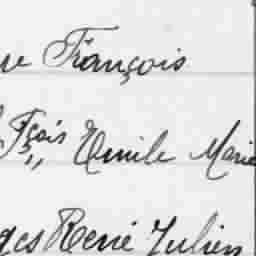 François
Fçois Emile Marie
René Julien